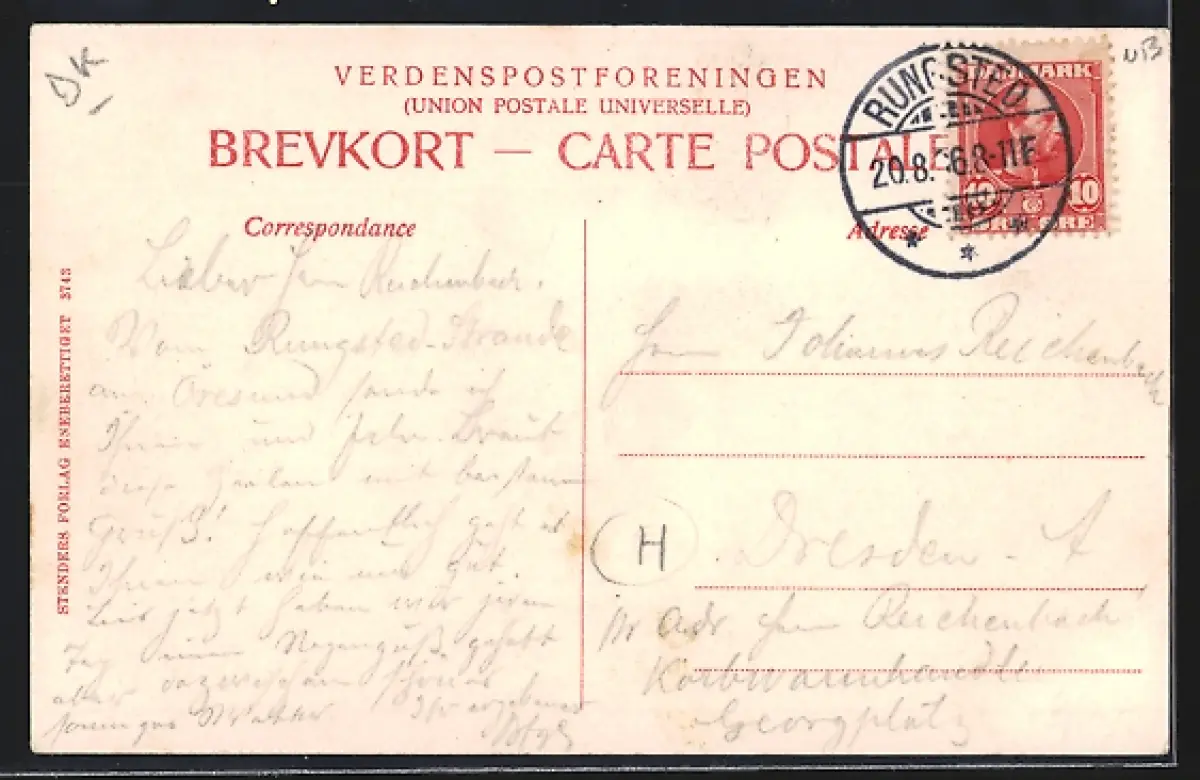 DK
VERDENSPOSTFORENINGEN
(UNION POSTALE UNIVERSELLE)
BREVKORT — CARTE POSTALE
RUNGSTED
20.8. 6 8-11 E
DANMARK
10 10
ØRE ØRE
Correspondance
Adresse
STENDERS FORLAG ENEBERETTIGET 3743
Lieber Herr Reichenbach!
Vom Rungsted-Strande
am Öresund sende ich
Ihnen und Braut
diese Zeilen mit bestem
Gruß! Hoffentlich geht es
Ihnen wie uns gut.
Bis jetzt haben wir jeden
Tag einen Regenguß gehabt
aber dazwischen schönes
sonniges Wetter. Ihr ergebener
Herrn Johannes Reichenbach
H
Dresden - A
Adr. Herrn Reichenbach
Korbwarenhandlg
Georgplatz